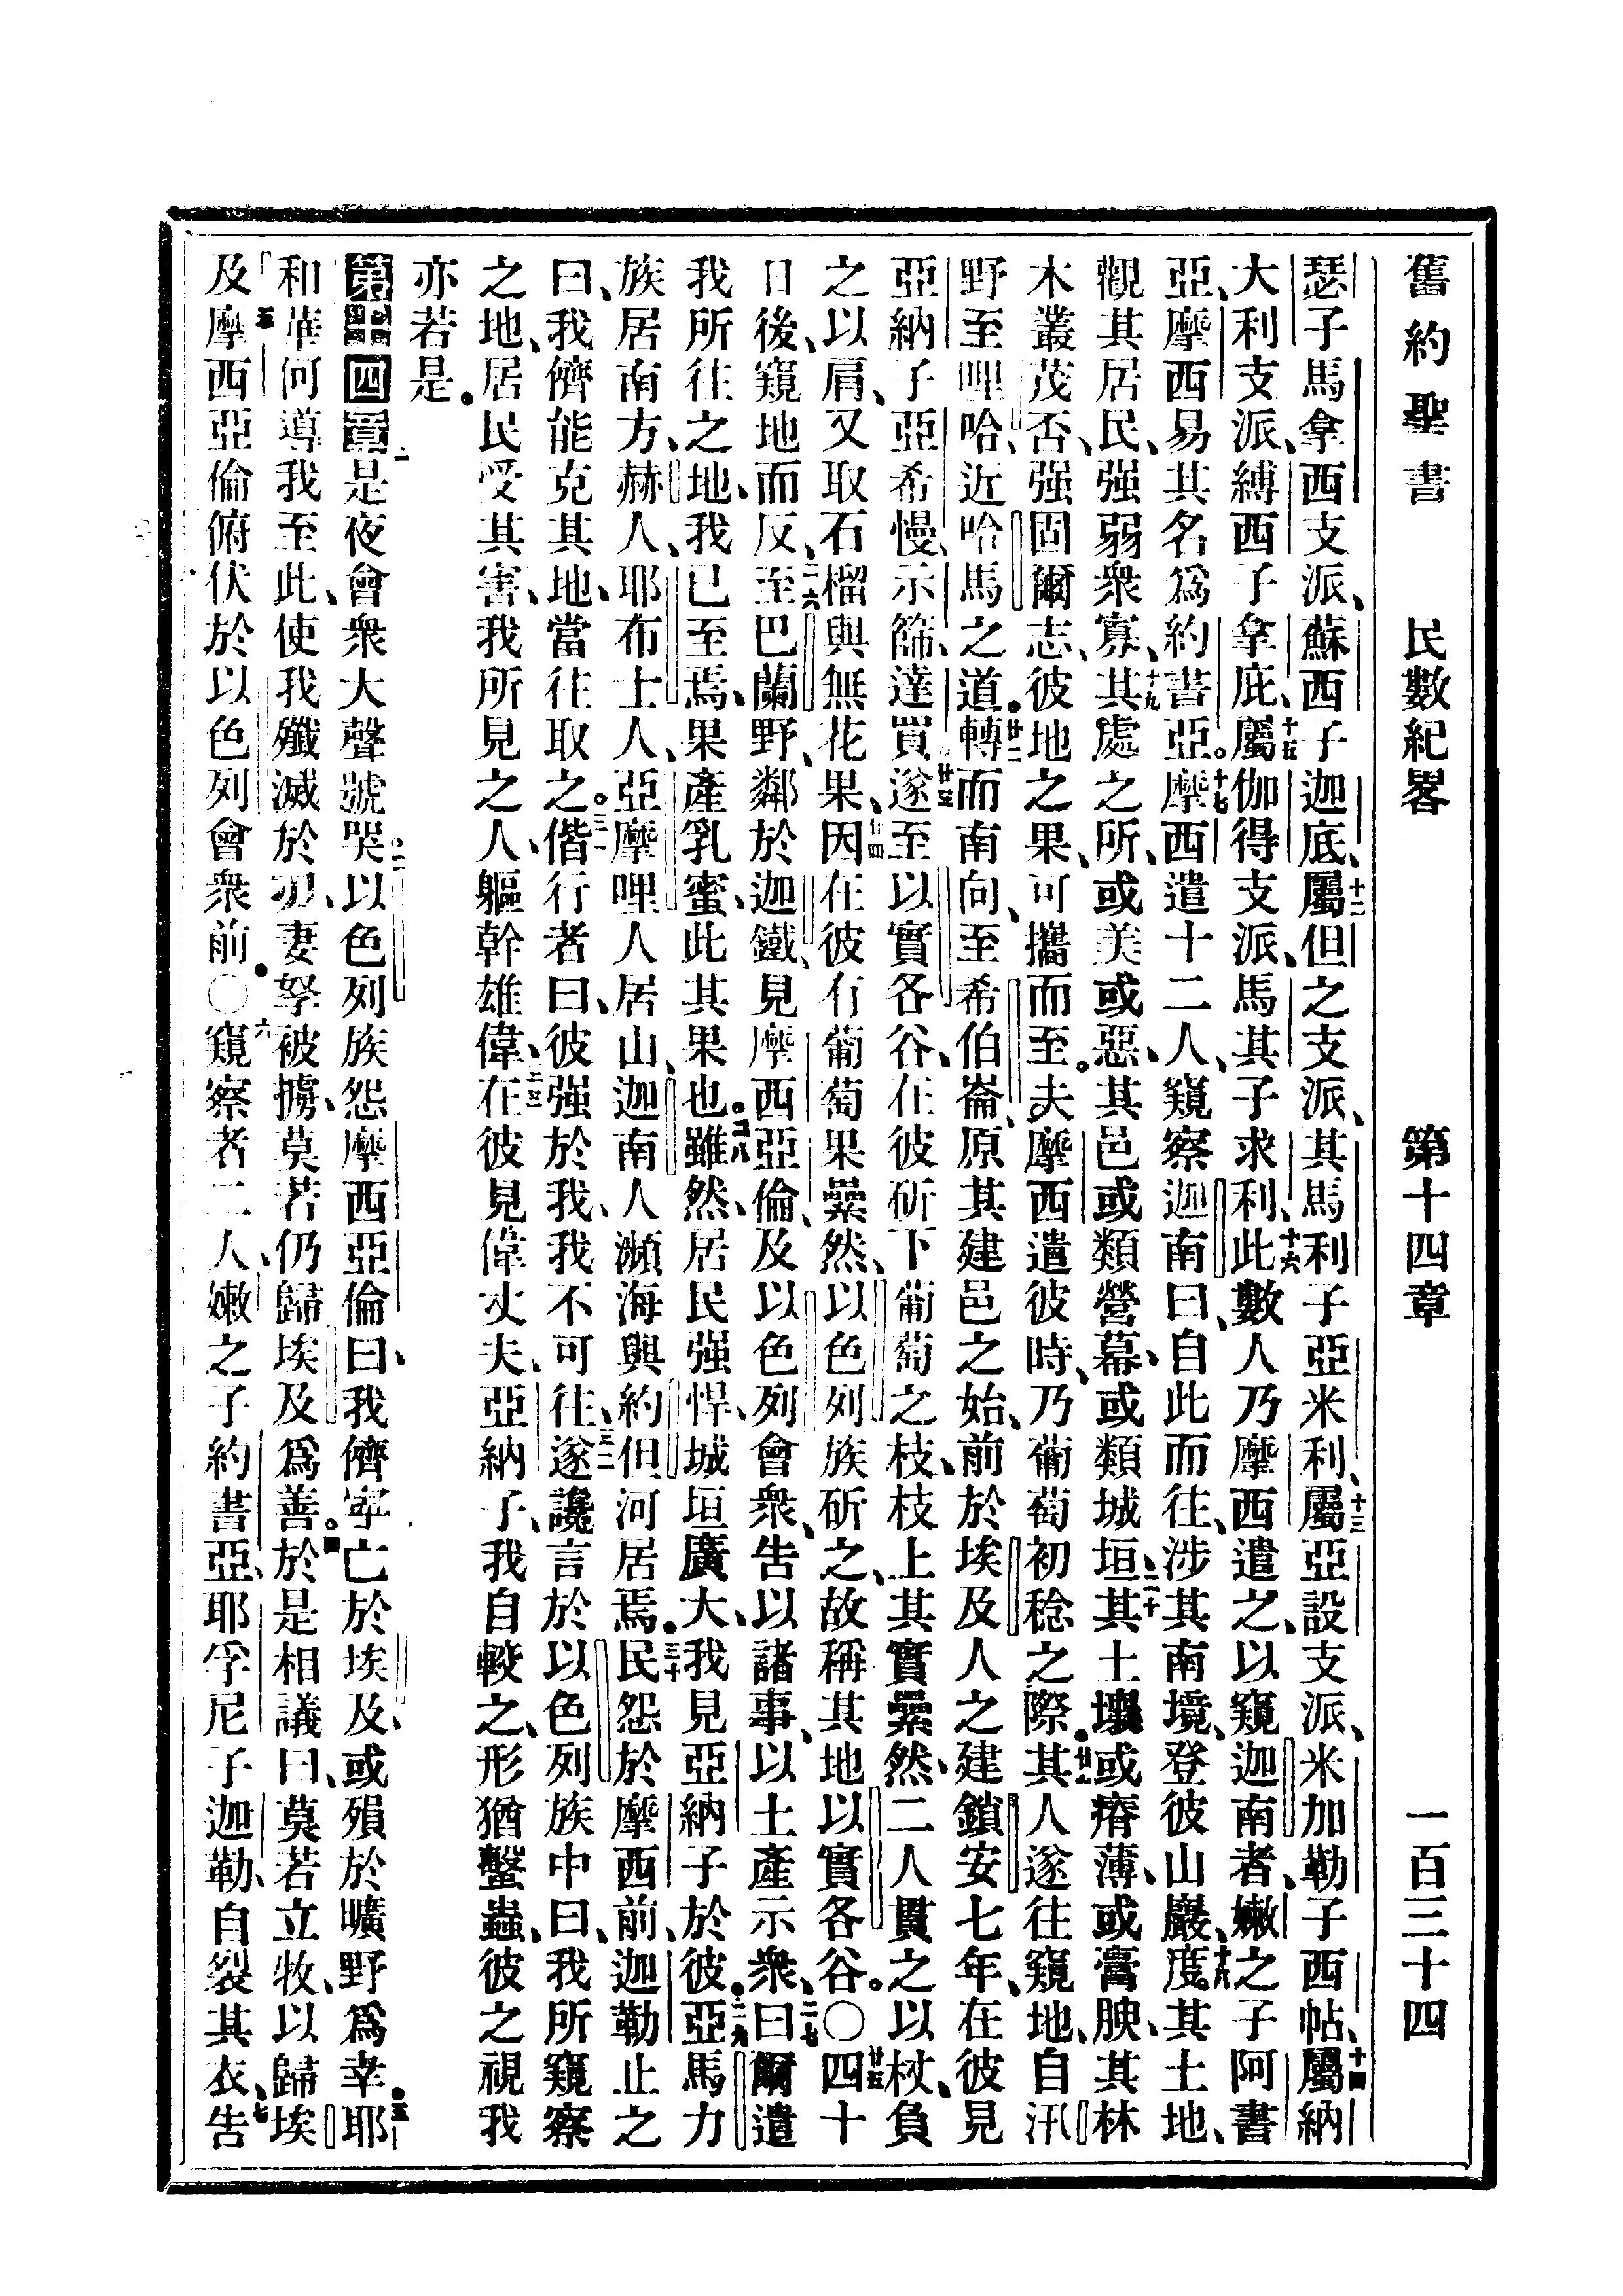 舊約聖書 民數紀畧 第十四章 一百三十四
瑟子馬拿西支派、蘇西子迦底、十二屬但之支派、其馬利子亞米利、十三屬亞設支派、米加勒子西帖、十四屬納
大利支派、縛西子拿庇、十五屬伽得支派、馬其子求利、十六此數人乃摩西遣之、以窺迦南者、嫩之子阿書
亞、摩西易其名爲約書亞。十七摩西遣十二人、窺察迦南曰、自此而往、涉其南境、登彼山巖、十八度其土地、
觀其居民、强弱衆寡、十九其處之所、或美或惡、其邑或類營幕、或類城垣、二十其土壤或瘠薄、或膏腴、其林
木叢茂否、强固爾志、彼地之果、可攜而至。夫摩西遣彼時、乃葡萄初稔之際。廿一其人遂往窺地、自汛
野至哩哈、近哈馬之道。廿二轉而南向、至希伯崙、原其建邑之始、前於埃及人之建鎖安七年、在彼見
亞納子亞希慢、示篩、達買、廿三遂至以實各谷、在彼斫下葡萄之枝、枝上其實纍然、二人貫之以杖、負
之以肩、又取石榴與無花果、廿四因在彼有葡萄果纍然、以色列族斫之、故稱其地以實各谷。〇廿五四十
日後、窺地而反、二六至巴蘭野、鄰於迦鐵、見摩西亞倫、及以色列會衆、告以諸事、以土產示衆、二七曰爾遣
我所往之地、我已至焉、果產乳蜜、此其果也。二八雖然、居民强悍、城垣廣大、我見亞納子於彼。二九亞馬力
族居南方、赫人、耶布士人、亞摩哩人居山、迦南人瀕海與約但河居焉。三十民怨於摩西前、迦勒止之
曰、我儕能克其地、當往取之。三一偕行者曰、彼强於我、我不可往、三二遂讒言於以色列族中曰、我所窺察
之地、居民受其害、我所見之人、軀幹雄偉、三三在彼見偉丈夫、亞納子、我自較之、形猶螚蟲、彼之視我
亦若是。
第十四章 一是夜會衆大聲號哭。二以色列族怨摩西亞倫曰、我儕寧亡於埃及、或殞於曠野爲幸。三耶
和華何導我至此、使我殲滅於刃、妻孥被擄、莫若仍歸埃及爲善。四於是相議曰、莫若立牧、以歸埃
及五摩西亞倫俯伏於以色列會衆前。〇六窺察者二人、嫩之子約書亞、耶孚尼子迦勒、自裂其衣、七告